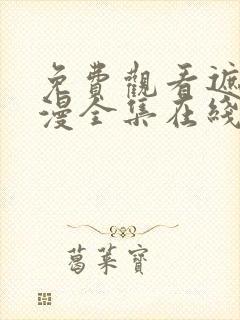 免費觀看遮
漫全集在綫
葛萊寶